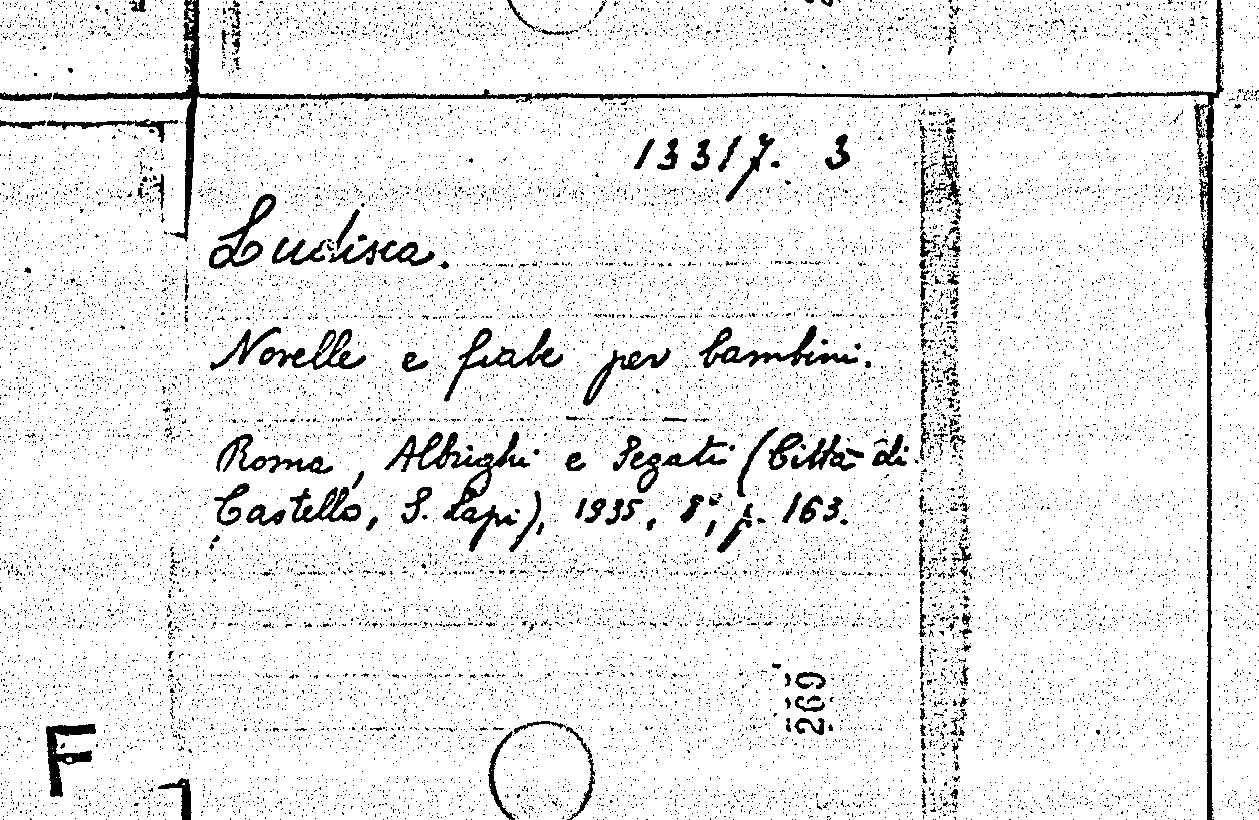 13317. 3
Ludisca.
Novelle e fiabe per bambini.
Roma, Albrighi e Segati (Città di
Castello, S. Lapi), 1935, 8°, p. 163.
269
F